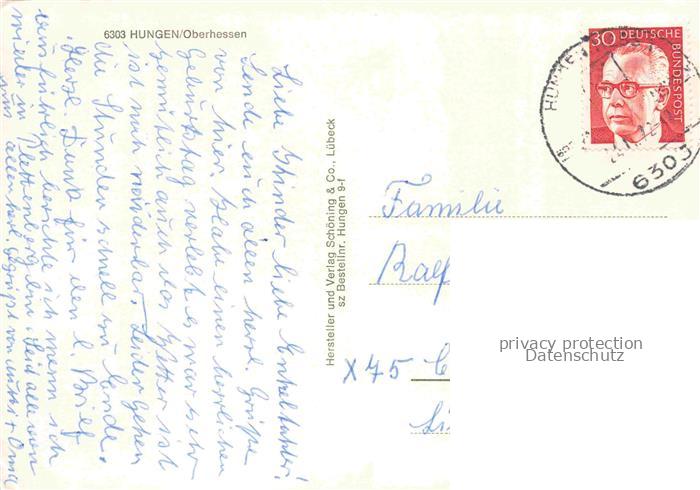 6303 HUNGEN/Oberhessen
Liebe Kinder liebe Enkeltochter!
Sende euch allen herzl. Grüße
von hier. Habe einen herrlichen
Geburtstag verlebt es war sehr
gemütlich auch das Wetter ist
ist noch wunderbar. Leider gehen
die Stunden schnell zu Ende.
Herzl. Dank für den l. Brief
ausführlich berichte ich wenn ich
wieder in Plettenberg bin. Seid alle von
uns allen herzl. gegrüßt von Mutti + Oma
Hersteller und Verlag Schöning & Co., Lübeck
sz Bestellnr. Hungen 9-f
30 DEUTSCHE
BUNDESPOST
HUNGEN
6303
Familie
Ralf
X 75
privacy protection
Datenschutz